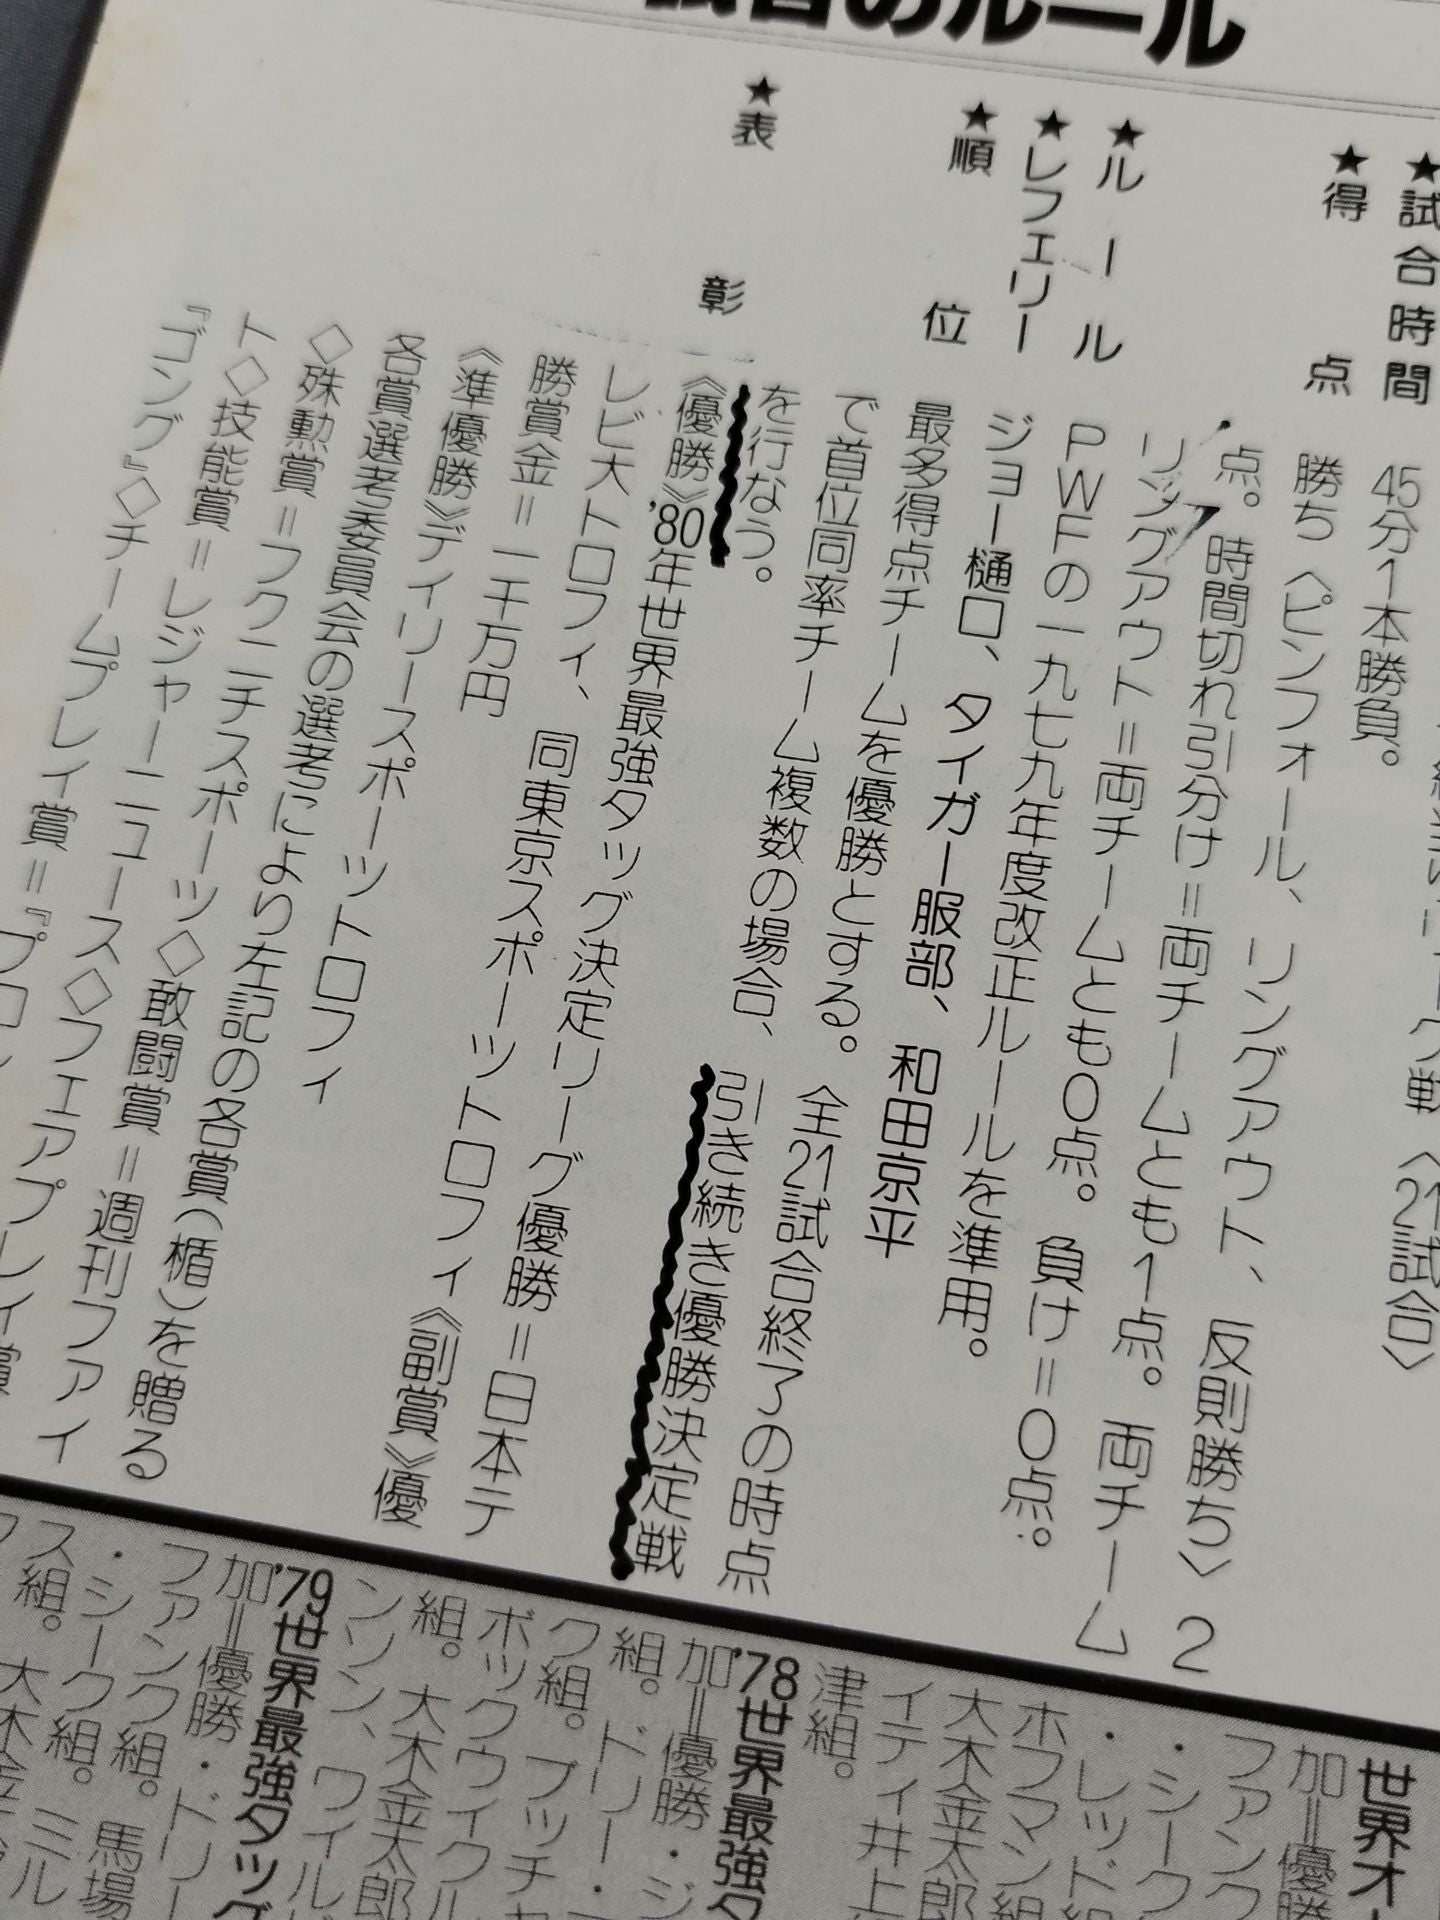 試合のルール
★試合時間
45分1本勝負。
〈21試合〉
★得点
勝ち〈ピンフォール、リングアウト、反則勝ち〉2
点。時間切れ引分け＝両チームとも1点。両チーム
リングアウト＝両チームとも0点。負け＝0点。
★ルール
PWFの一九七九年度改正ルールを準用。
★レフェリー
ジョー樋口、タイガー服部、和田京平
★順位
最多得点チームを優勝とする。全21試合終了の時点
で首位同率チーム複数の場合、引き続き優勝決定戦
を行なう。
★表彰
《優勝》'80年世界最強タッグ決定リーグ優勝＝日本テ
レビ大トロフィ、同東京スポーツトロフィ《副賞》優
勝賞金＝一千万円
《準優勝》デイリースポーツトロフィ
各賞選考委員会の選考により左記の各賞(楯)を贈る
◇殊勲賞＝フクニチスポーツ◇敢闘賞＝週刊ファイ
ト◇技能賞＝レジャーニュース◇フェアプレイ賞
『ゴング』◇チームプレイ賞＝『プロレ
世界オー
加＝優勝
ファンク
・シーク
・レッド
ホフマン組
大木金太郎
イティ井上
津組。
'78世界最強タ
加＝優勝・ジ
組。ドリー・
ク組。ブッチャ
ボックウィンクル
組。大木金太郎
ンソン、ワイルド
'79世界最強タッグ
加＝優勝・ドリー
ファンク組。馬場
・シーク組。ミル
ス組。大木金